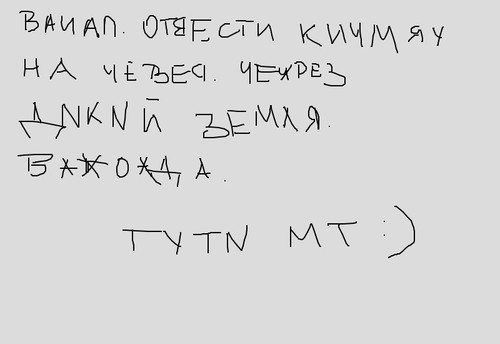 ВАИАП. ОТВЕСТИ КИЧМЯУ
НА ЧЕВЕД. ЧЕХРЕЗ
ДИКИЙ ЗЕМЛЯ.
ВАЖОЖДА.
ТУТN МТ :)